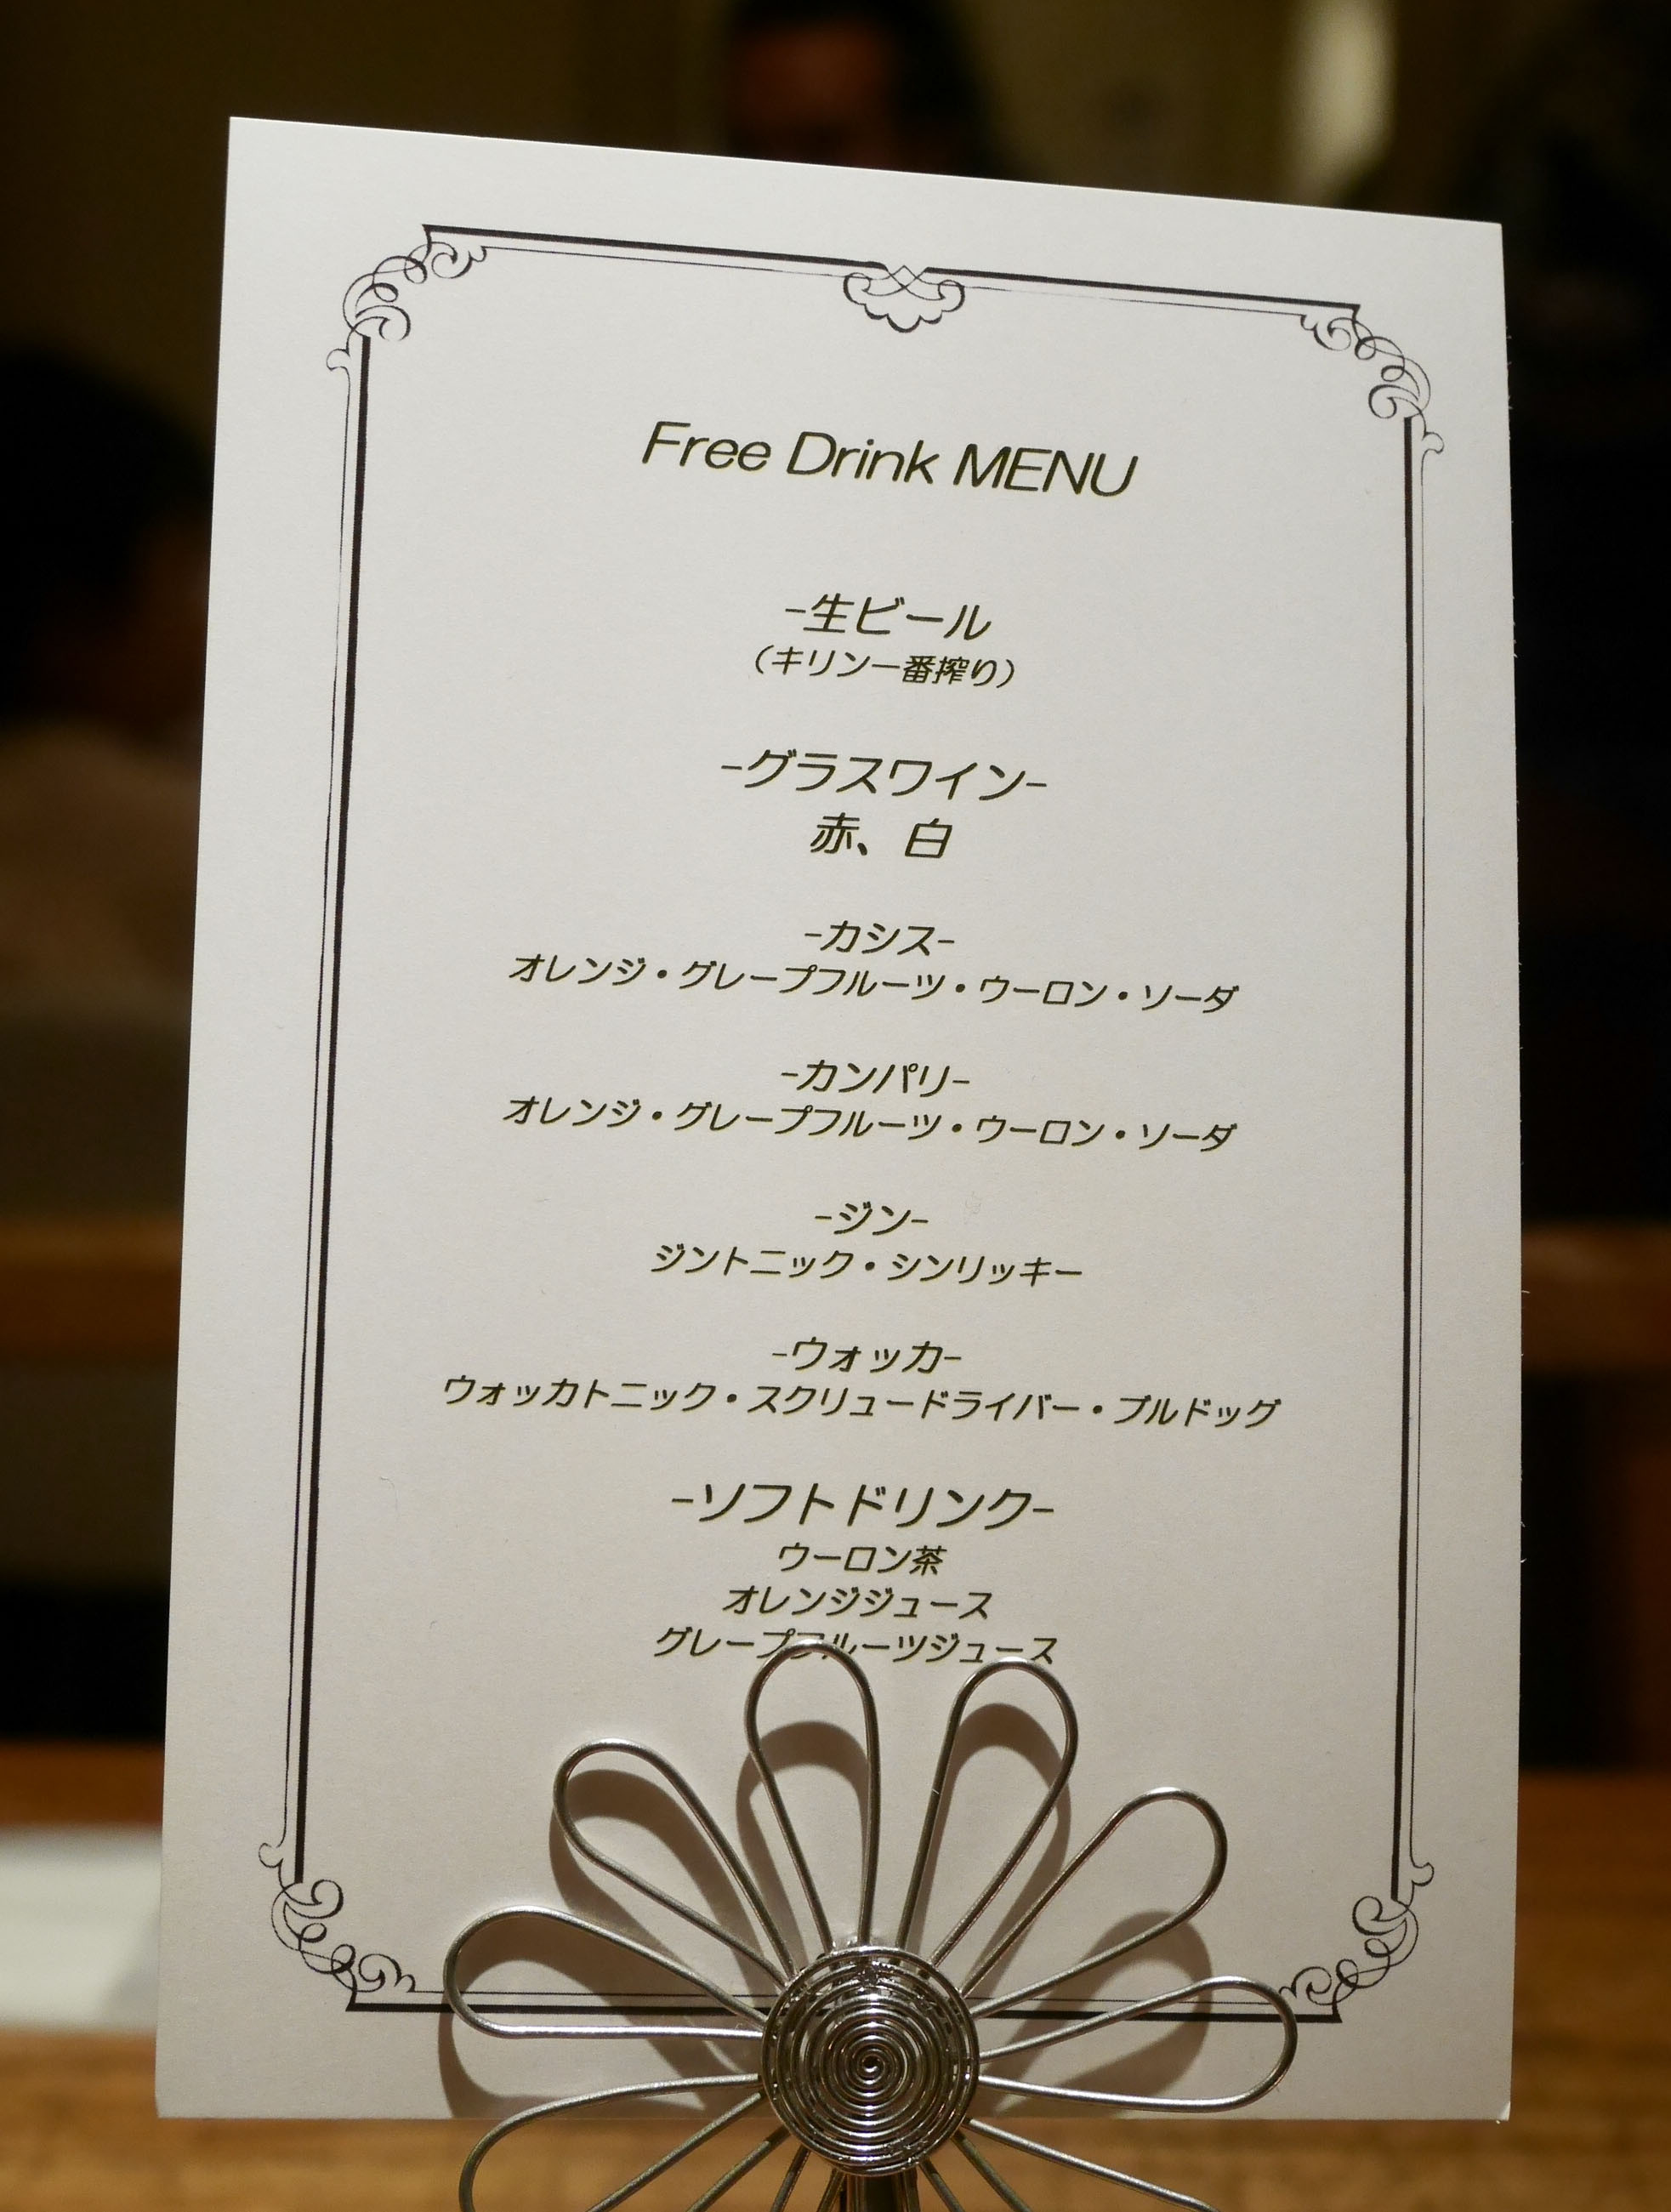 Free Drink MENU
-生ビール
（キリン一番搾り）
-グラスワイン-
赤、白
-カシス-
オレンジ・グレープフルーツ・ウーロン・ソーダ
-カンパリ-
オレンジ・グレープフルーツ・ウーロン・ソーダ
-ジン-
ジントニック・シンリッキー
-ウォッカ-
ウォッカトニック・スクリュードライバー・ブルドッグ
-ソフトドリンク-
ウーロン茶
オレンジジュース
グレープフルーツジュース